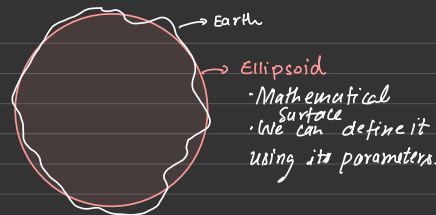 Earth
Ellipsoid
· Mathematical
Surface
· We can define it
using its parameters.